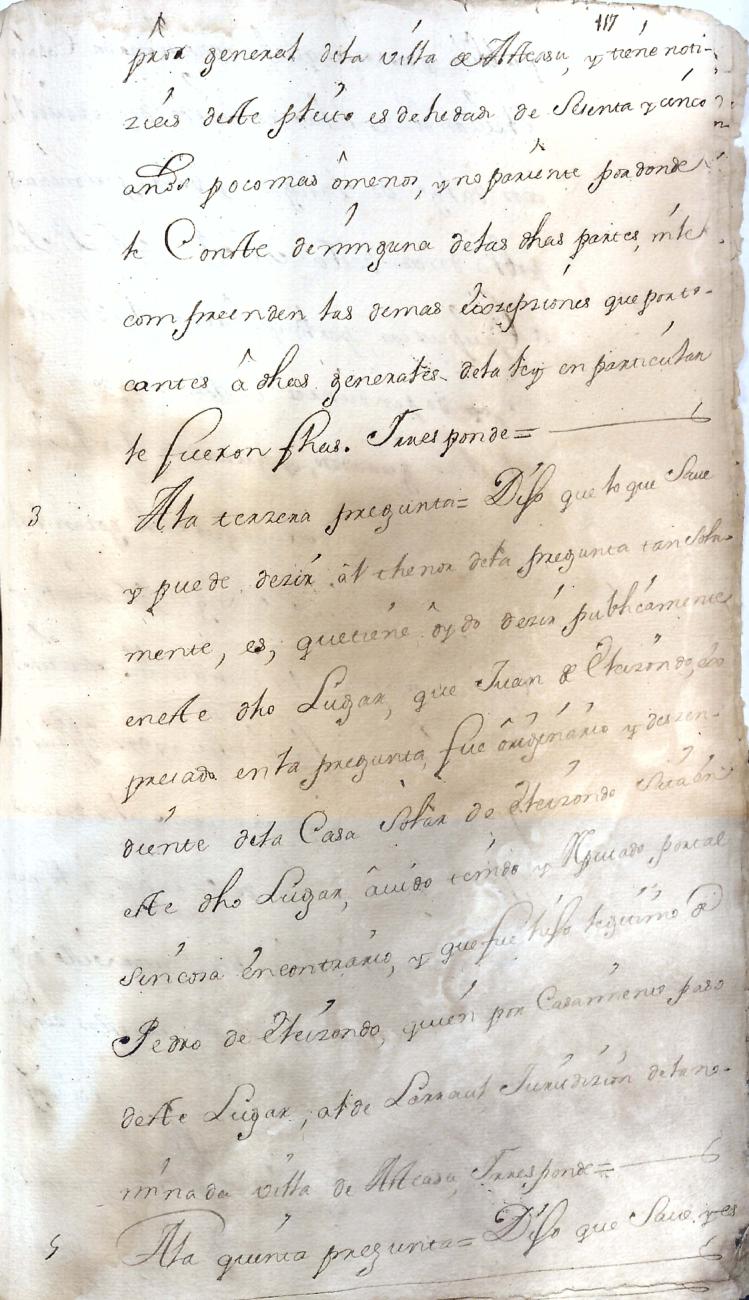 117
pror general dela villa de Atteasu, y tiene noti-
zias deste pleito es de hedad de Sesenta y cinco
años poco mas ô menos, y no pariente por donde
le Conste de ninguna delas dhas partes, nile
comprenden las demas excepziones que porto-
cantes â dhas generales dela ley en particular
le fueron fhas. Y responde=
3 Ala terzera pregunta= Dijo que lo que Save
y puede dezir al thenor dela pregunta tan sola-
mente, es, que tiene ôydo dezir publicamente
eneste dho Lugar, que Juan de Eleizondo,
preiado enla pregunta, fue ôriginario y deszen-
diente dela Casa Solar de Eleizondo Sita en
este dho Lugar, âuido tenido y Reputado portal
sin cosa encontrario, y que fue hijo legitimo de
Pedro de Eleizondo, quien por Casamiento paso
deste Lugar, al de Larraul Jurisdizion dela no-
minada villa de Atteasu, Y responde=
5 Ala quinta pregunta= Dijo que Save, y es